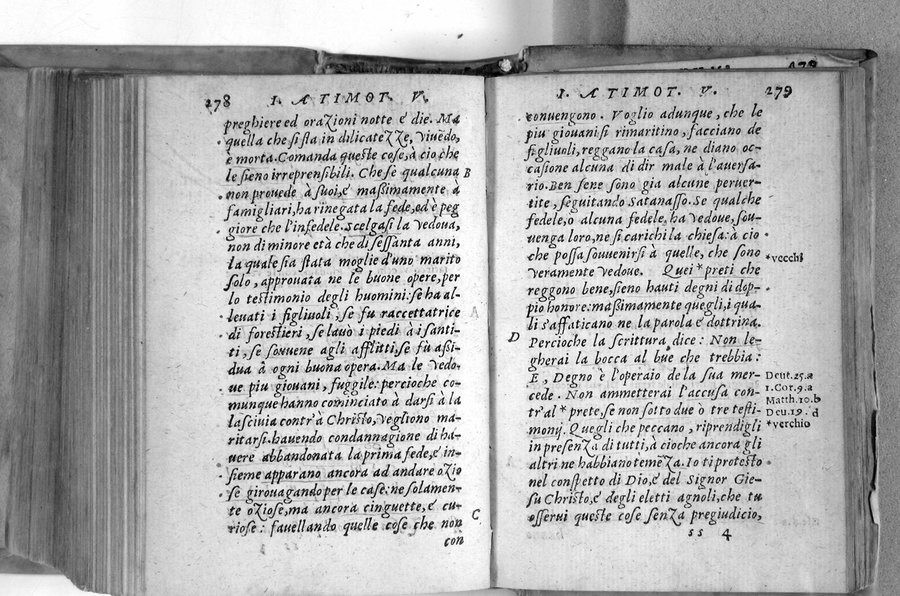 278 I. A TIMOT. V.
preghiere ed oraZioni notte e die. Ma
quella che si sta in dilicateZZe, viuẽdo,
è morta. Comanda queste cose, à cio che
le sieno irreprensibili. Che se qualcuna B
non prouede à suoi, e' maßimamente à
famigliari, ha rinegata la fede, ed è peg
giore che l'infedele. Scelgasi la vedoua,
non di minore età che di sessanta anni,
la quale sia stata moglie d'uno marito
solo, approuata ne le buone opere, per
lo testimonio degli huomini: se ha al-
leuati i figliuoli, se fu raccettatrice
di forestieri, se lauò i piedi à i santi-
ti, se souuene agli afflitti, se fu aßi-
dua à ogni buona opera. Ma le vedo-
ue piu giouani, fuggile: percioche co-
munque hanno cominciato à darsi à la
lasciuia contr'à Christo, vegliono ma-
ritarsi. hauendo condannagione di ha-
uere abbandonata la prima fede, e' in-
sieme apparano ancora ad andare oZio
se girouagando per le case: ne solamen-
te oZiose, ma ancora cinguette, e' cu-
riose: fauellando quelle cose che non C
con
I. A TIMOT. V. 279
conuengono. Voglio adunque, che le
piu giouani si rimaritino, facciano de
figliuoli, reggano la casa, ne diano oc-
casione alcuna di dir male à l'auersa-
rio. Ben sene sono gia alcune peruer-
tite, seguitando Satanasso. Se qualche
fedele, o alcuna fedele, ha vedoue, sou-
uenga loro, ne si carichi la chiesa: à cio
che possa souuenirsi à quelle, che sono
veramente vedoue. Quei * preti che
*vecchi
reggono bene, sieno hauti degni di dop-
pio honore: maßimamente quegli, i qua-
li s'affaticano ne la parola e' dottrina.
D Percioche la scrittura dice: Non le-
gherai la bocca al bue che trebbia:
E, Degno è l'operaio de la sua mer-
Deut.25.a
cede. Non ammetterai l'accusa con-
1.Cor.9.a
Matth.10.b
tr'al * prete, se non sotto due ò tre testi-
Deu.19.d
monij. Quegli che peccano, riprendigli
*verchio
in presenZa di tutti, à cioche ancora gli
altri ne habbiano temẽZa. Io ti protesto
nel conspetto di Dio, e' del Signor Gie-
su Christo, e' degli eletti agnoli, che tu
osserui queste cose senZa pregiudicio,
ss 4